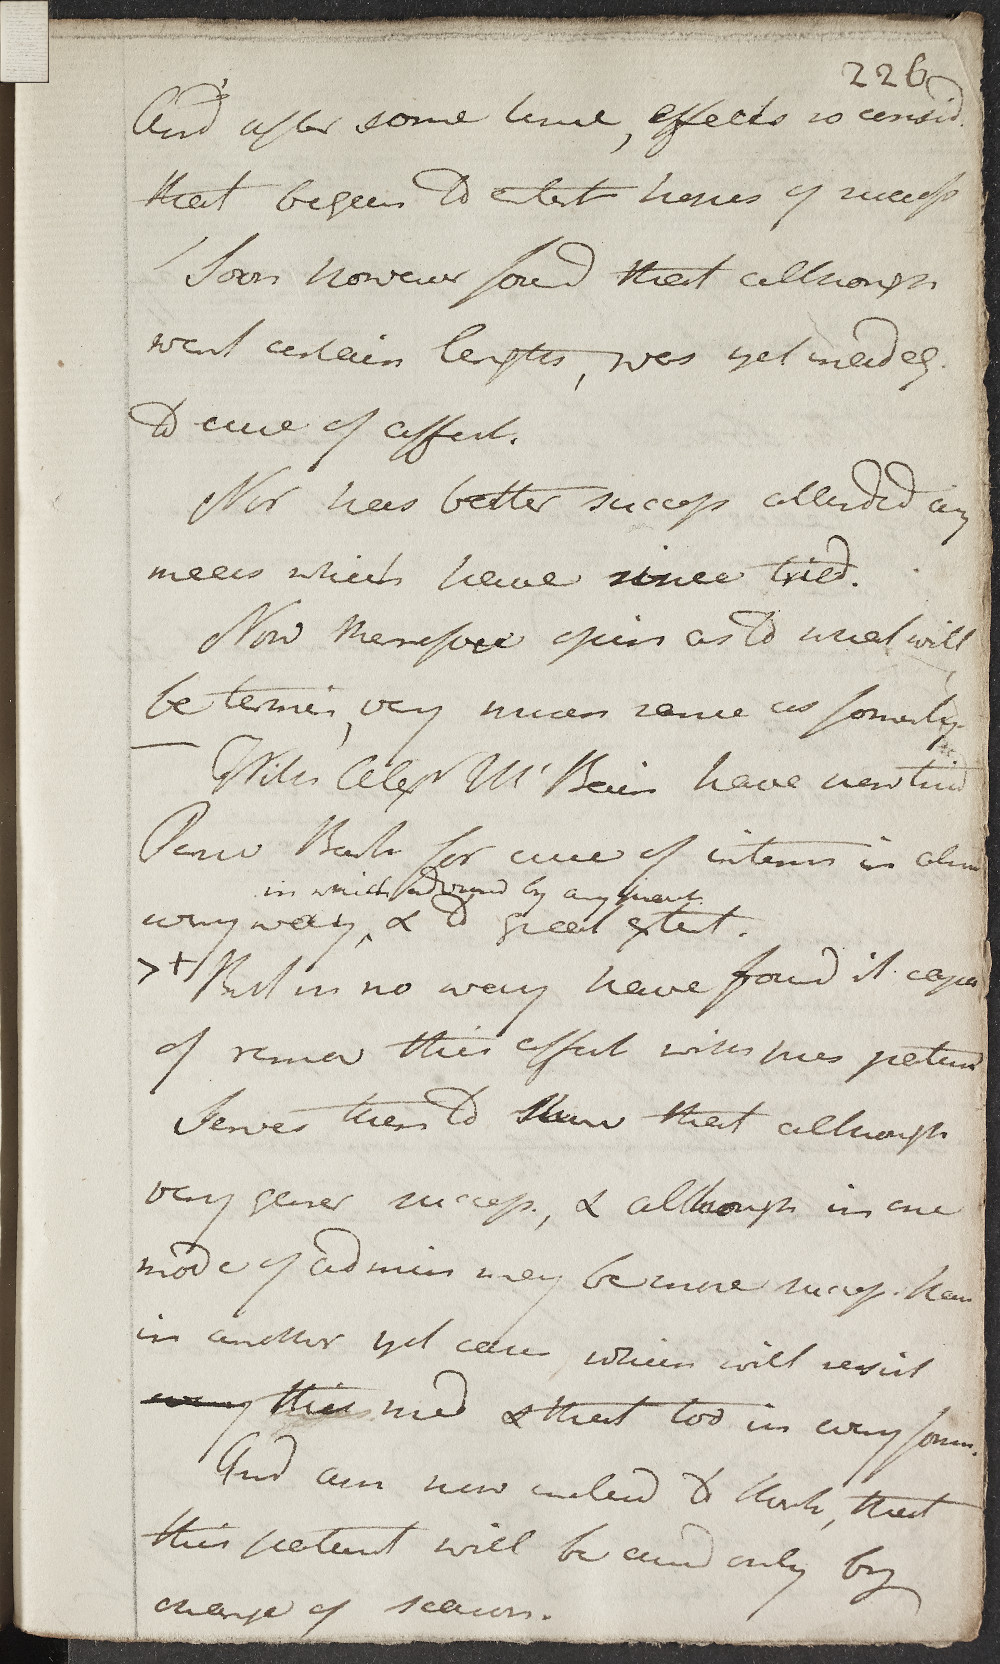 226
And after some time, effects so consid.
that began to entert hopes of success
Soon however found that although
went certain length, was yet inadeq.
to cure of affect.
Nor has better success attended any
means which have since tried.
Now therefore opin as to what will
be termin, very much same as formerly.
With Alexr Mc Bain have now tried
Peruv Bark for cure of interm in alm
every way, & to great extent.
in which advised by any pract.
>+ But in no way have found it capa
of remov this affect with this patient
Serves then to shew that although
very gener success, & although in one
mode of admin may be more success. than
in another yet cases which will resist
every this med & that too in every form.
And am now inclin to think, that
this patient will be cured only by
change of season.